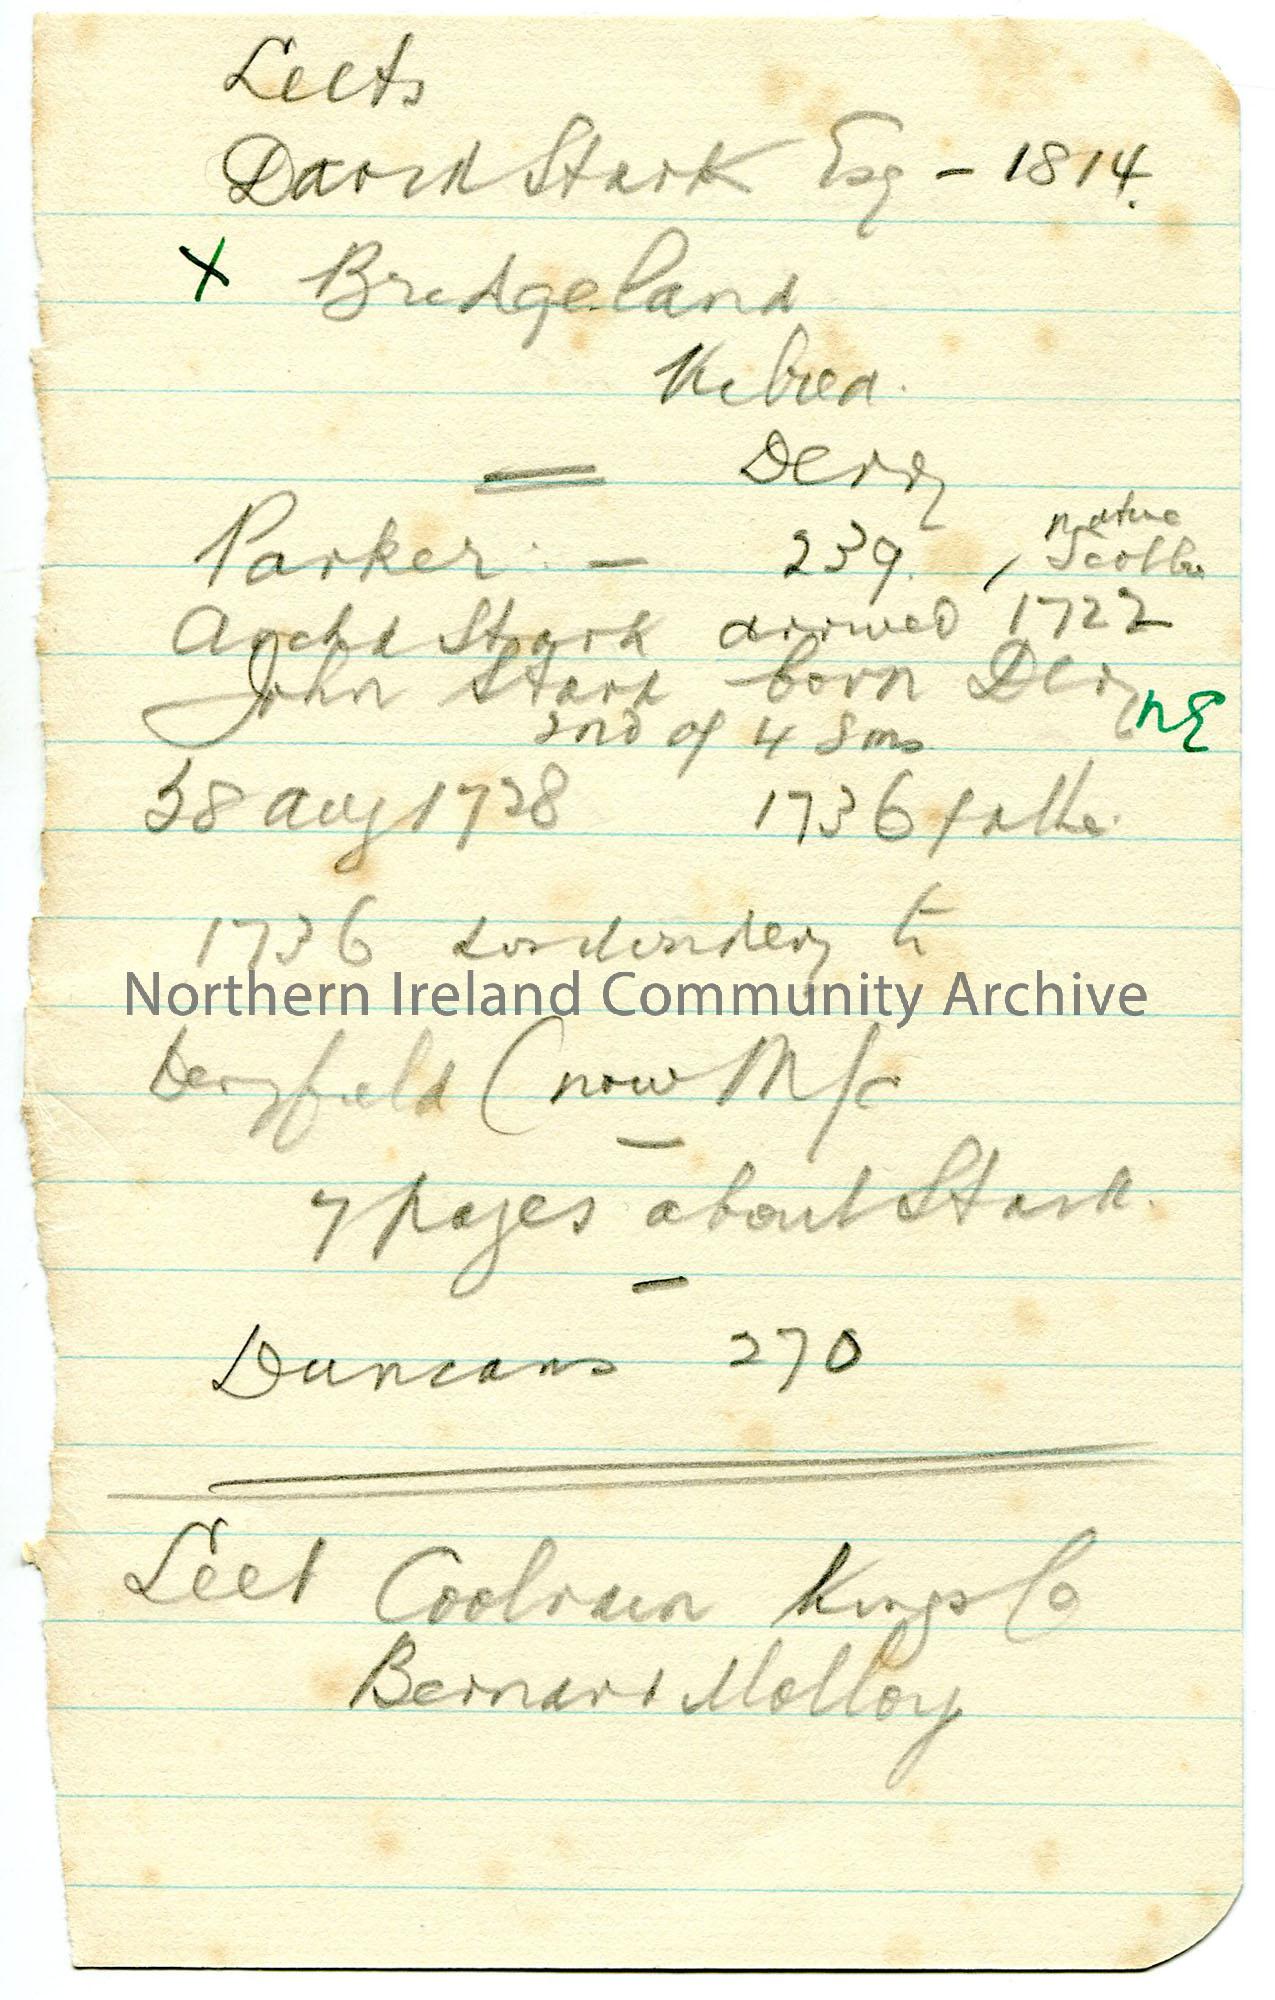 Leets
David Stark Esq – 1814.
X Bridgeland
Kilrea.
Derry
Parker : – 239. , native Scotland
Archd Stark arrived 1722
John Stark born Derry NE
2nd of 4 Sons
28 Aug 1728 1736 father
1736 Londonderry to
Northern Ireland Community Archive
Derryfield (now M/c
–
7 pages about Stark.
–
Duncans 270
Leet Coolrain Kings Co
Bernard Molloy